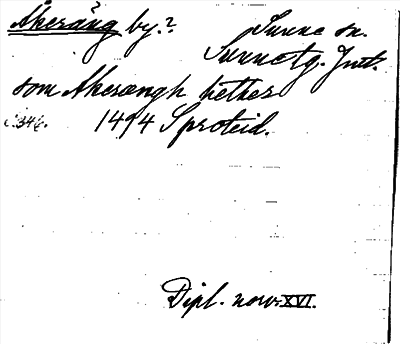 Åkeräng by.? Sunne sn.
Sunne tg. Jmtl.
som Akerængh hether
s. 346. 1494 Sproteid.
Dipl. norv. XVI.